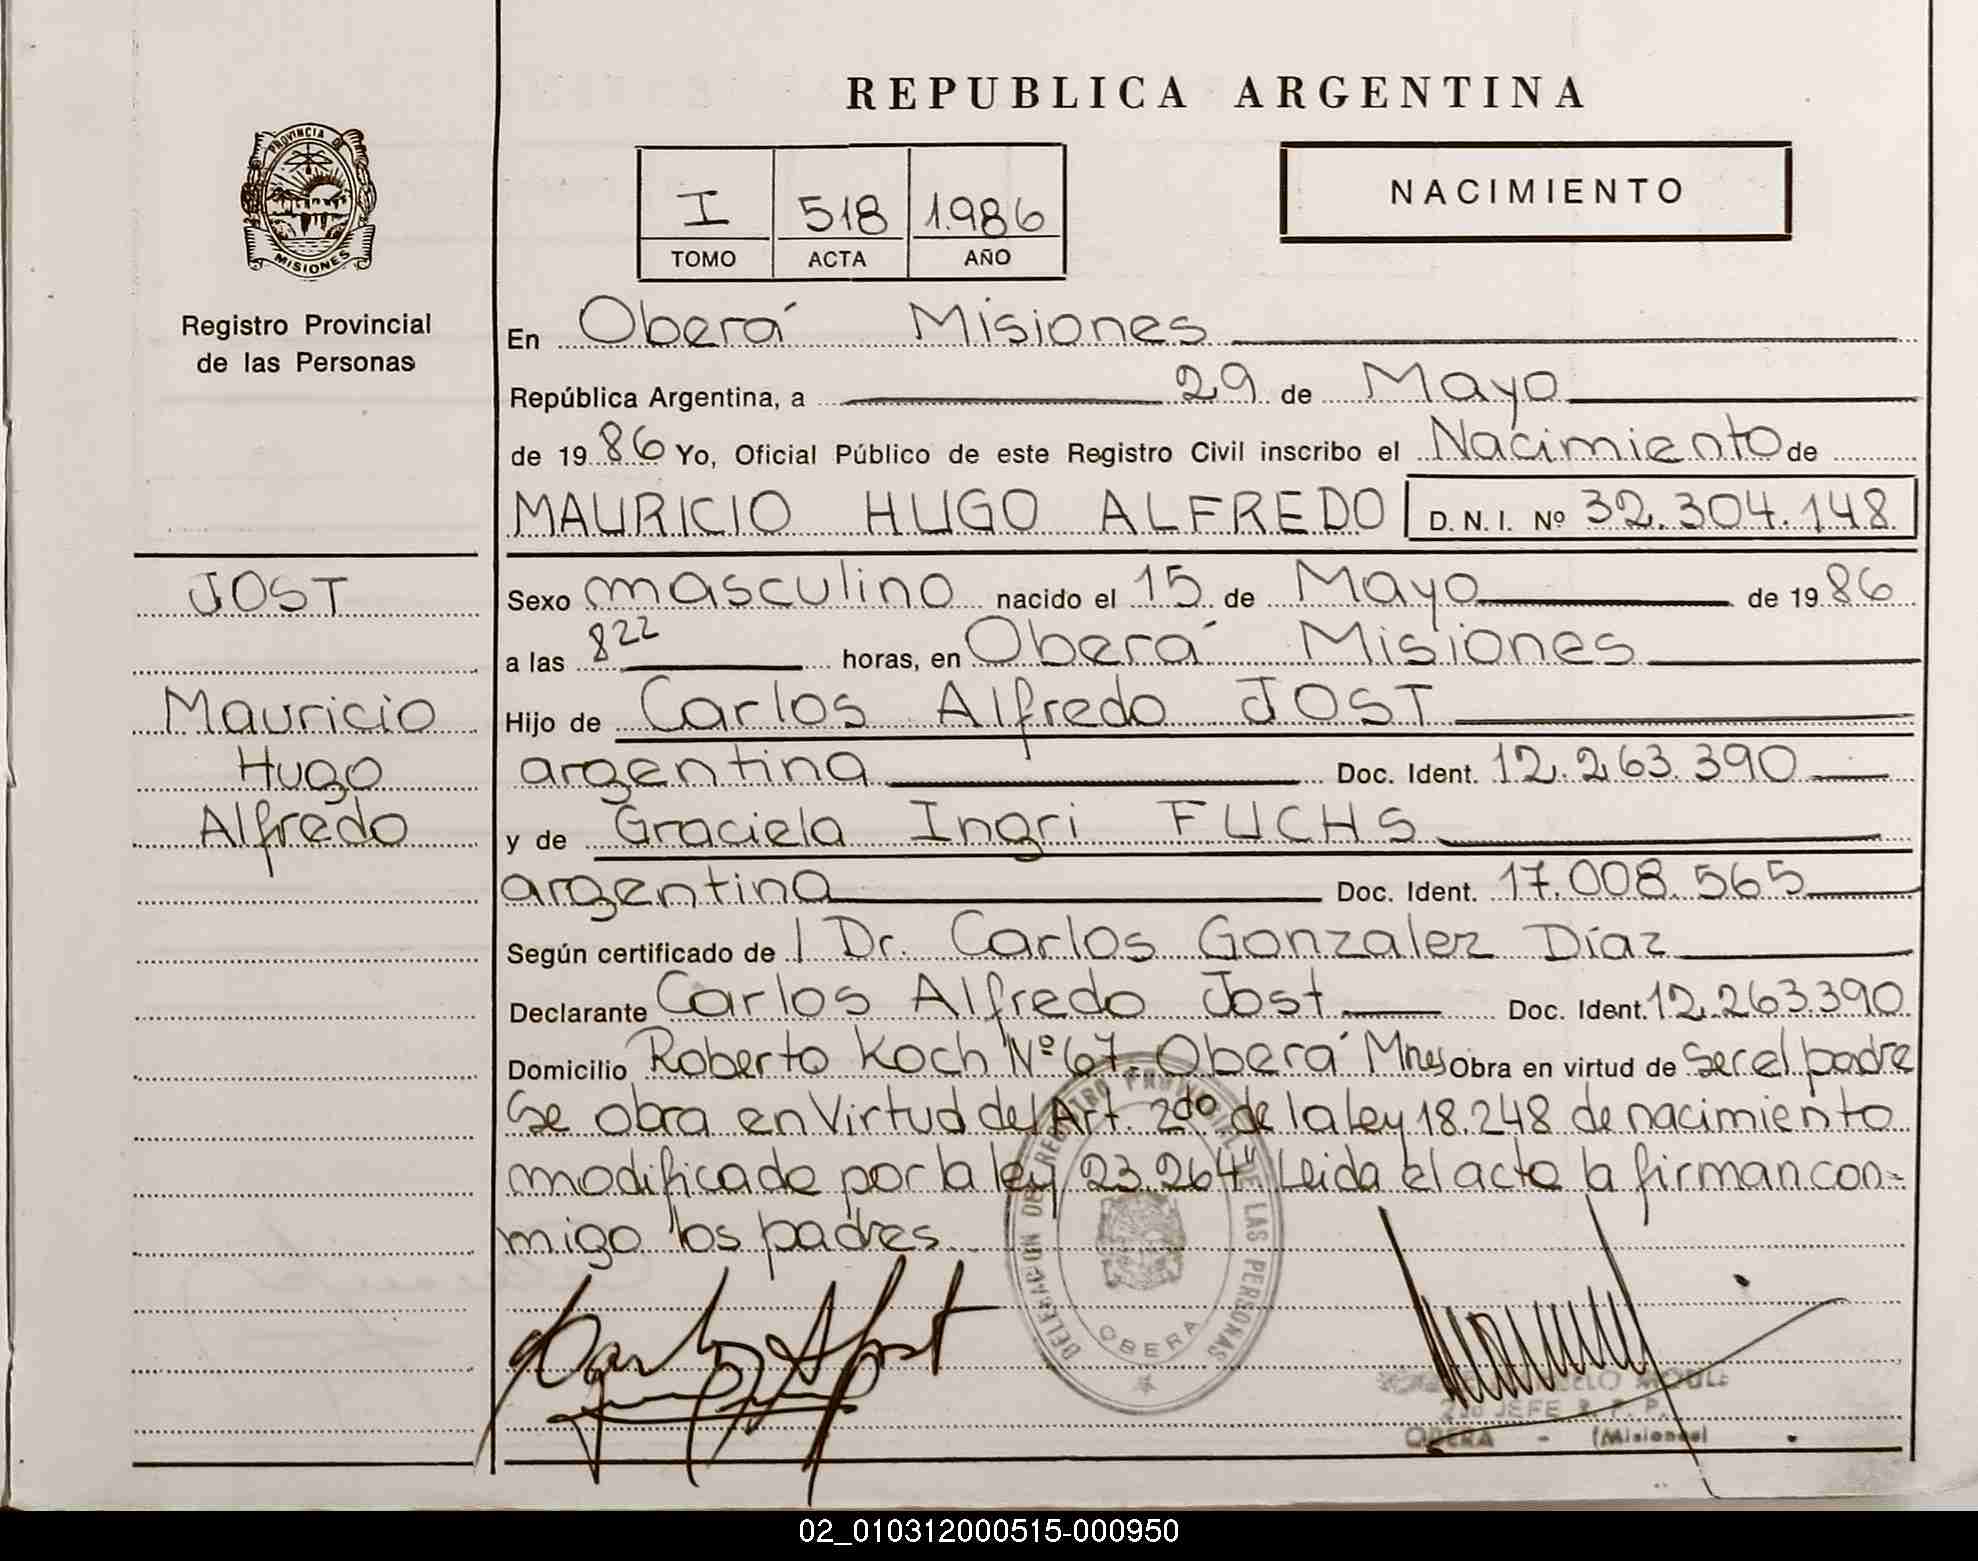 REPUBLICA ARGENTINA
PROVINCIA DE
MISIONES
Registro Provincial
de las Personas
I 518 1.986
TOMO ACTA AÑO
NACIMIENTO
En Oberá Misiones
República Argentina, a 29 de Mayo
de 19 86 Yo, Oficial Público de este Registro Civil inscribo el Nacimiento de
MAURICIO HUGO ALFREDO D. N. I. Nº 32.304.148
JOST
Mauricio
Hugo
Alfredo
Sexo masculino nacido el 15 de Mayo de 19 86
a las 8 22 horas, en Oberá Misiones
Hijo de Carlos Alfredo JOST
argentina Doc. Ident. 12.263.390
y de Graciela Ingri FUCHS
argentina Doc. Ident. 17.008.565
Según certificado de Dr. Carlos Gonzalez Díaz
Declarante Carlos Alfredo Jost Doc. Ident. 12.263.390
Domicilio Roberto Koch Nº 67. Oberá Mnes Obra en virtud de ser el padre
Se obra en Virtud del Art. 2do de la ley 18.248 de nacimiento
modificado por la ley 23.264" Leida el acta la firman con-
migo los padres
DELEGACION DEL REGISTRO PROVINCIAL DE LAS PERSONAS
OBERA
2do JEFE R. P. P.
OBERA - (Misiones)
02_010312000515-000950